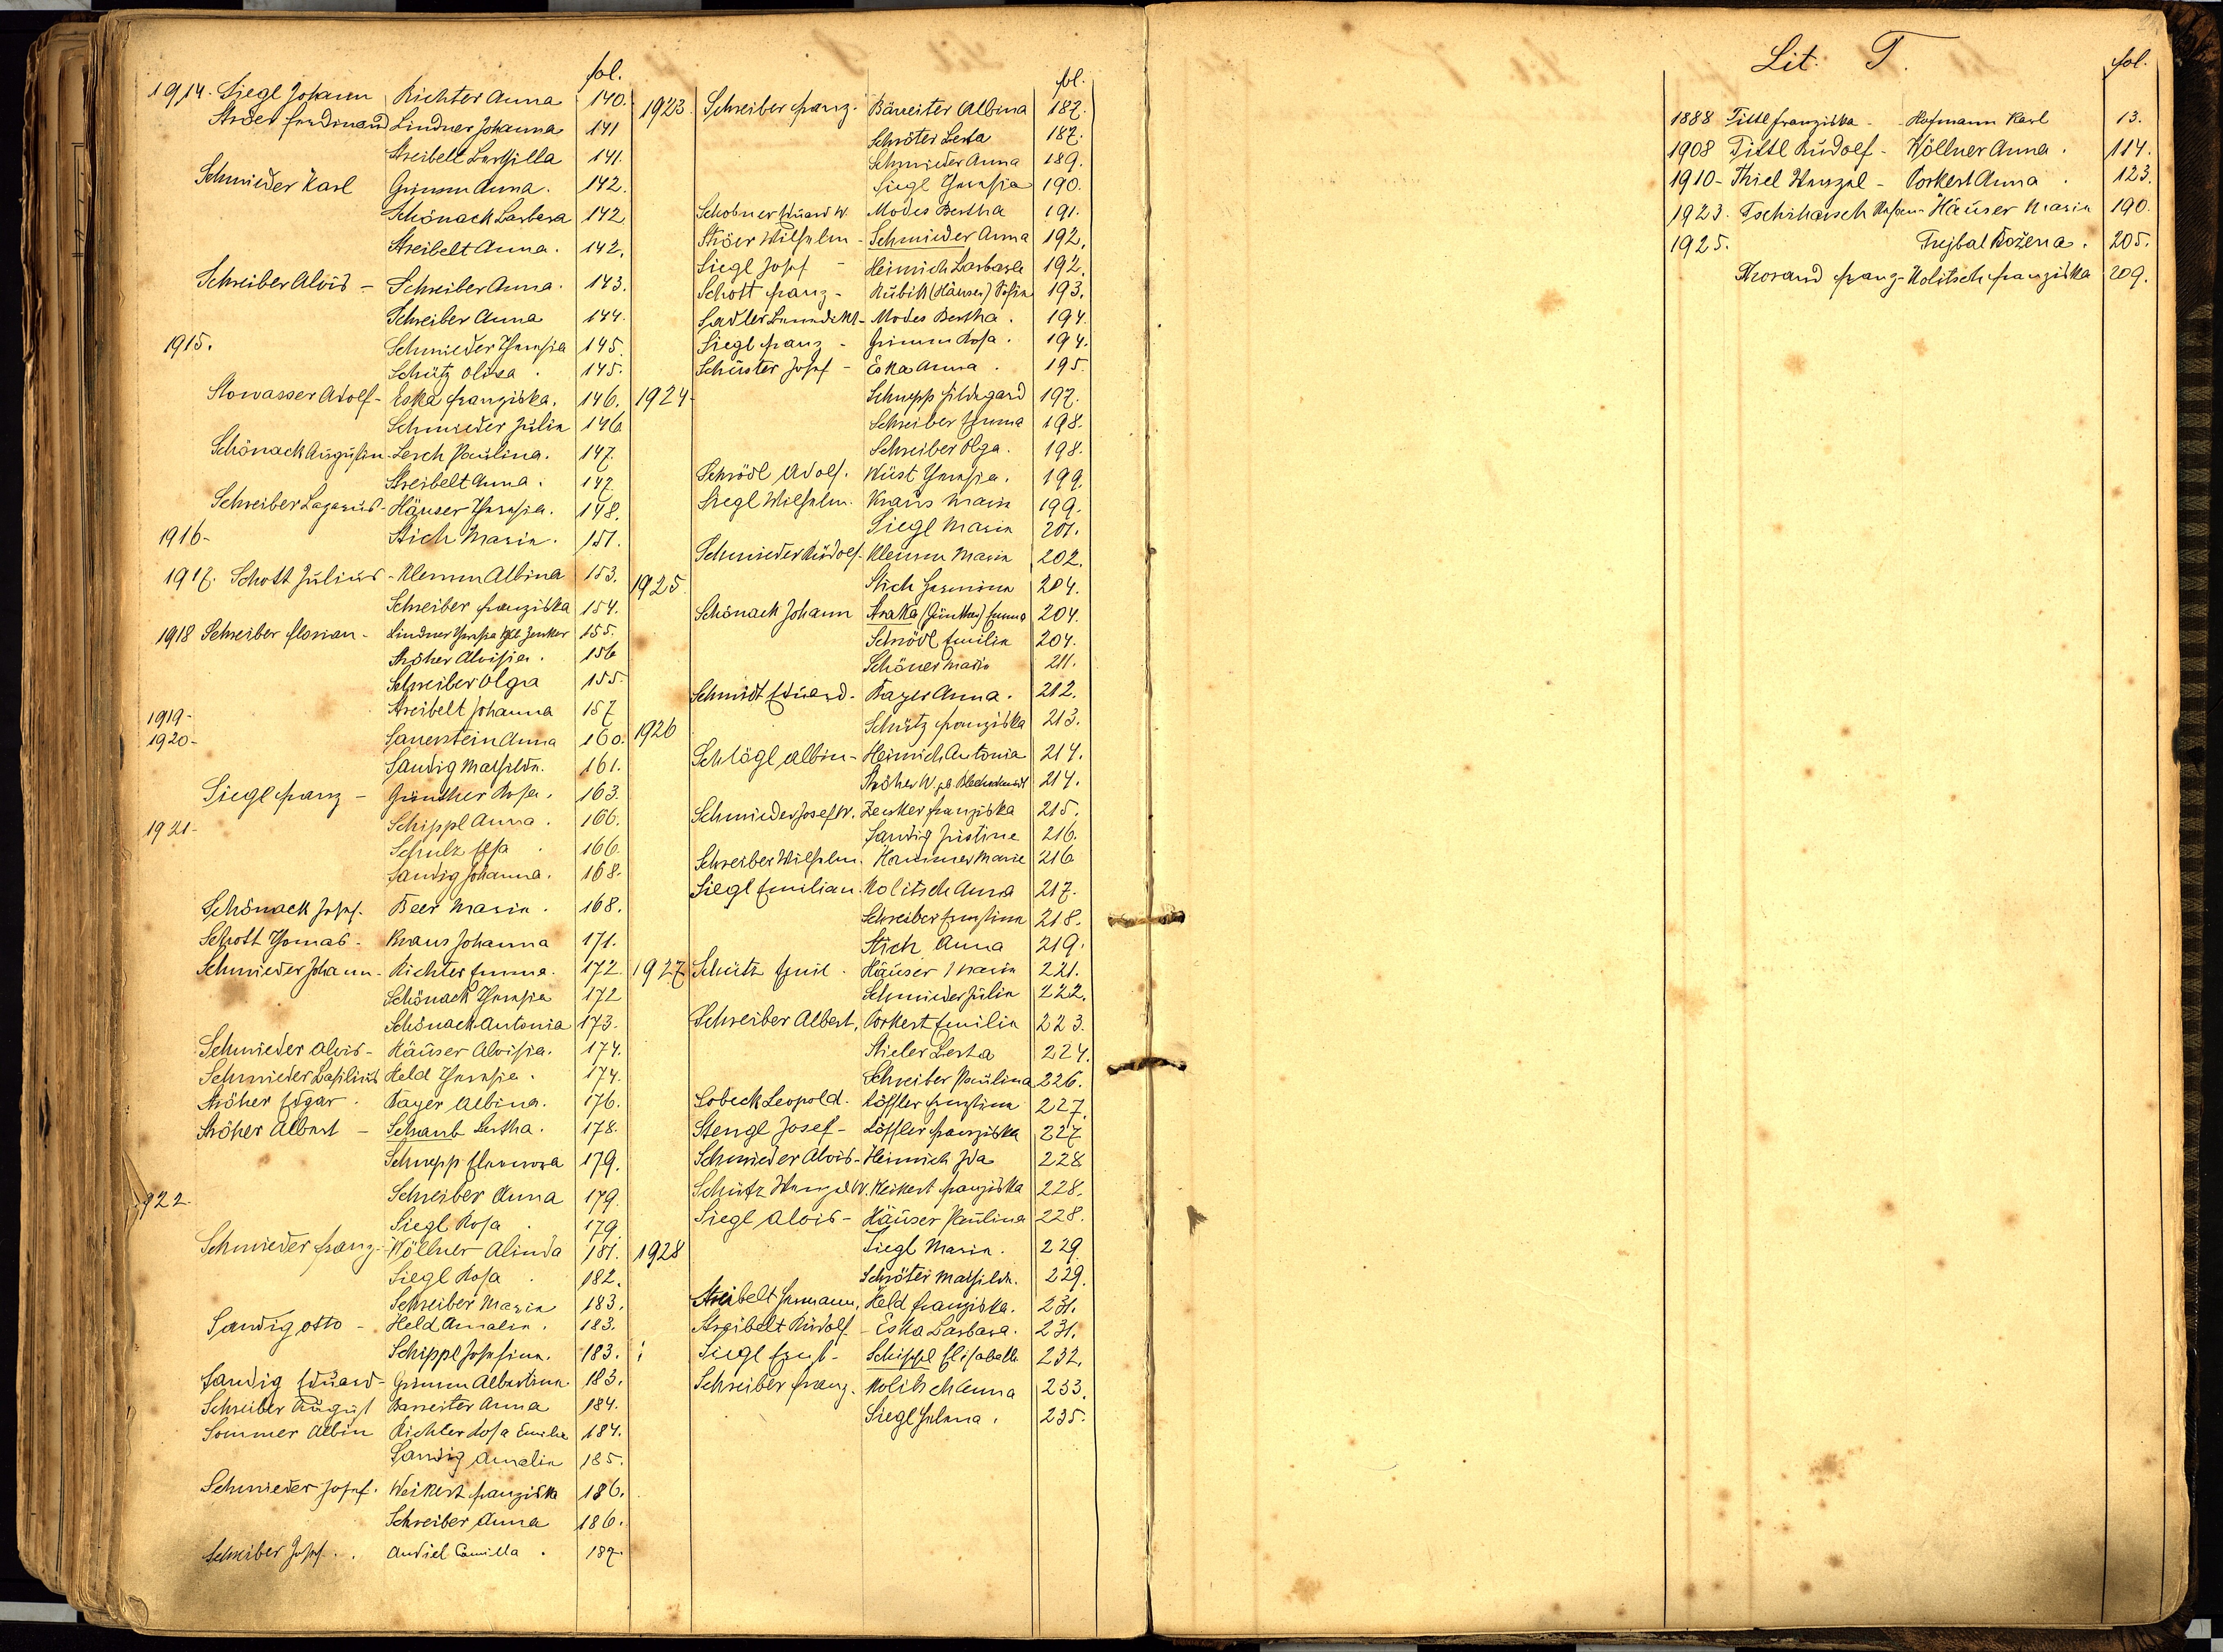 fol.
1914. Siegl Johann Richter Anna 140.
Ströer Ferdinand Lindner Johanna 141
Streibelt 141.
Schmieder Karl Grimm Anna. 142.
Schönach Barbara 142
Streibelt Anna. 142.
Schreiber Alois - Schreiber Anna. 143.
Schreiber Anna 144.
1915. Schmieder Theresia 145.
Schütz Olga. 145.
Stowasser Adolf - Eska Franziska. 146.
Schmieder Julia 146
Schönach Augustin - Lerch Paulina. 147.
Streibelt Anna. 147.
Schreiber Lazarus - Häuser Theresia. 148.
1916- Stich Maria. 151.
1917. Schott Julius - Klemm Albina 153.
Schreiber Franziska 154.
1918 Schreiber Florian - Lindner Theresia Zenker 155.
Ströher Aloisia. 156
Schreiber Olga 155
1919- Streibelt Johanna 157
1920- Sauerstein Anna 160.
Sandig Mathilda. 161.
Siegl Franz - Günther Rosa. 163.
1921- Schippl Anna. 166.
Schulz Elsa. 166.
Sandig Johanna. 168.
Schönach Josef. Beer Maria. 168.
Schott Thomas - Kraus Johanna 171.
Schmieder Johann - Richter Emma. 172.
Schönach Theresia 172
Schönach Antonia 173.
Schmieder Alois - Häuser Aloisia. 174.
Schmieder Basilius Held Theresia. 174.
Ströher Edgar. Bayer Albina. 176.
Ströher Albert - Schaub Bertha. 178.
Schnepp Eleonora 179.
1922. Schreiber Anna 179.
Siegl Rosa. 179.
Schmieder Franz - Wöllner Alinda 181.
Siegl Rosa. 182.
Schreiber Maria 183.
Sandig Otto - Held Amalia. 183.
Schippl Josefina. 183.
Sandig Eduard - Grimm Albertina 183.
Schreiber August Barreiter Anna 184.
Sommer Albin Richter Rosa Emilie 184.
Sandig Amalia 185.
Schmieder Josef. Weikert Franziska 186.
Schreiber Anna 186.
Schreiber Josef. Andiel Camilla. 187.
fol.
1923. Schreiber Franz. Bäreiter Albina 187.
Schröter Berta 187.
Schmieder Anna 189.
Siegl Theresia 190.
Schobner Eduard W. Modes Bertha 191.
Ströer Wilhelm - Schmieder Anna 192.
Siegl Josef - Heinrich Barbara 192.
Schott Franz - Kubik (Häuser) Sofia 193.
Sadler Benedikt - Modes Bertha. 194.
Siegl Franz - Grimm Rosa. 194.
Schuster Josef - Eska Anna. 195.
1924- Schnepp Hildegard 197.
Schreiber Emma 198.
Schreiber Olga. 198.
Schrödl Adolf. Wüst Theresia. 199.
Siegl Wilhelm. Kraus Maria 199.
Siegl Maria 201.
Schmieder Rudolf. Klemm Maria 202.
1925. Stich Hermina 204.
Schönach Johann Straka (Günther) Emma 204.
Schrödl Emilia 204.
Schöner Maria 211.
Schmidt Eduard - Bayer Anna. 212.
1926 Schütz Franziska 213.
Schlögl Albin - Heinrich Antonia 214.
Ströher W. gb. Blechschmidt 214.
Schmieder Josef W. Zenker Franziska 215.
Sandig Justine 216.
Schreiber Wilhelm. Hammer Marie 216
Siegl Emilian. Kolitsch Anna 217.
Schreiber Ernstina 218.
Stich Anna 219.
1927 Schütz Emil. Häuser Maria 221.
Schmieder Julia 222.
Schreiber Albert, Porkert Emilia 223.
Stieler Berta 224.
Schreiber Paulina 226.
Sobeck Leopold. Löffler Ernstina 227.
Stengl Josef - Löffler Franziska 227
Schmieder Alois - Heinrich Ida 228
Schütz Wenzel W. Weikert Franziska 228.
Siegl Alois - Häuser Paulina 228.
1928 Siegl Maria. 229.
Schröter Mathilda. 229.
Streibelt Hermann, Held Franziska. 231.
Streibelt Rudolf - Eska Barbara. 231.
Siegl Ernst - Schippl Elisabetha 232.
Schreiber Franz. Kolitsch Anna 233.
Siegl Helena. 235.
Lit. T. fol.
1888 Tittl Franziska - Hofmann Karl 13.
1908 Tittl Rudolf - Wöllner Anna. 114.
1910 - Thiel Wenzel - Porkert Anna. 123.
1923. Tschiharsch Häuser Maria 190.
1925. Trejbal Božena. 205.
Thorand Franz - Kolitsch Franziska 209.